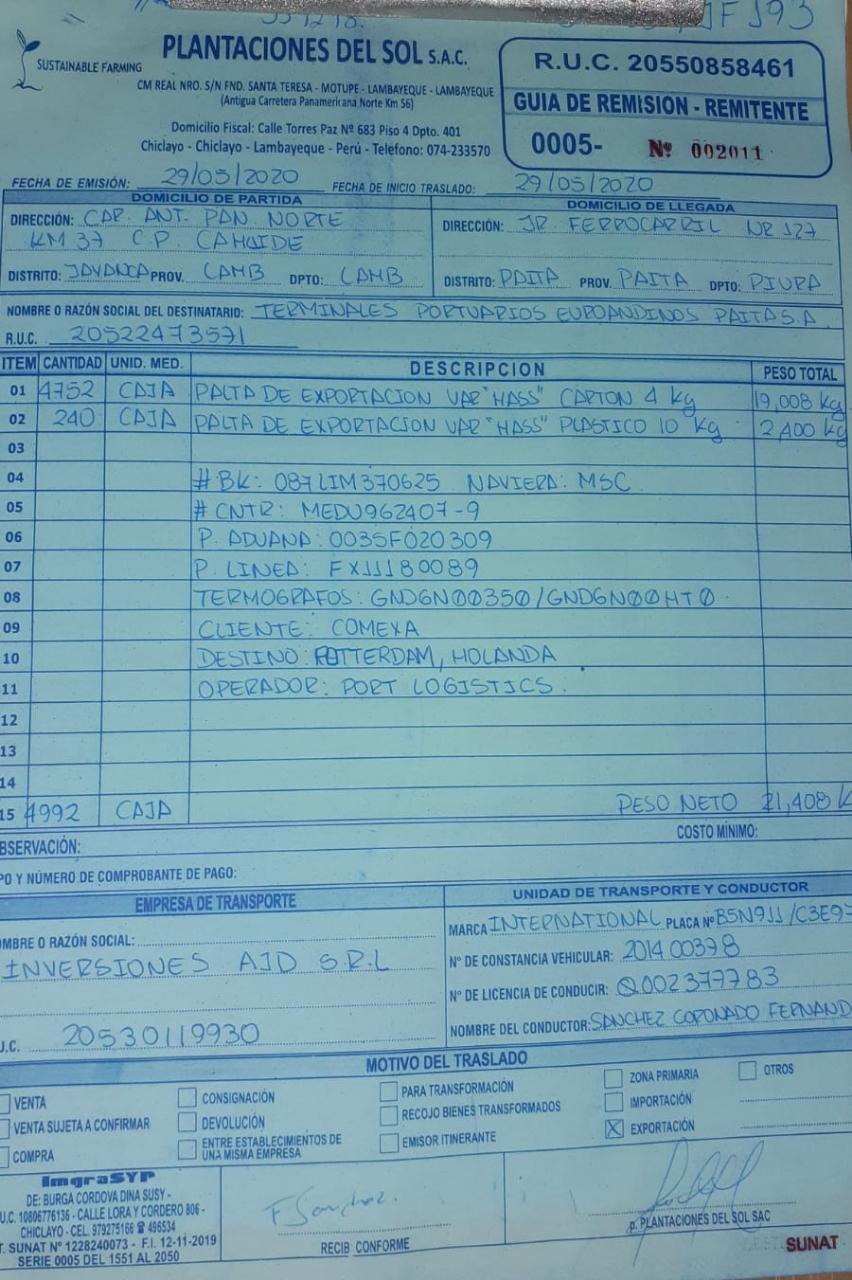 JF J93
SUSTAINABLE FARMING
PLANTACIONES DEL SOL S.A.C.
CM REAL NRO. S/N FND. SANTA TERESA - MOTUPE - LAMBAYEQUE - LAMBAYEQUE
(Antigua Carretera Panamericana Norte Km 56)
Domicilio Fiscal: Calle Torres Paz Nº 683 Piso 4 Dpto. 401
Chiclayo - Chiclayo - Lambayeque - Perú - Teléfono: 074-233570
R.U.C. 20550858461
GUIA DE REMISION - REMITENTE
0005- Nº 002011
FECHA DE EMISIÓN: 29/05/2020 FECHA DE INICIO TRASLADO: 29/05/2020
DOMICILIO DE PARTIDA
DIRECCIÓN: CAR. ANT. PAN. NORTE
KM 37 C.P. CAHUIDE
DISTRITO: JAYANCA PROV. LAMB DPTO: LAMB
DOMICILIO DE LLEGADA
DIRECCIÓN: JR. FERROCARRIL NR 127
DISTRITO: PAITA PROV. PAITA DPTO: PIURA
NOMBRE O RAZÓN SOCIAL DEL DESTINATARIO: TERMINALES PORTUARIOS EUROANDINOS PAITA S.A.
R.U.C. 20522473571
ITEM CANTIDAD UNID. MED. DESCRIPCION PESO TOTAL
01 4752 CAJA PALTA DE EXPORTACION VAR "HASS" CARTON 4 kg 19,008 kg
02 240 CAJA PALTA DE EXPORTACION VAR "HASS" PLASTICO 10 kg 2,400 kg
03
04 # BK: 087LIM370625 NAVIERA: MSC
05 # CNTR: MEDU962407-9
06 P. ADUANA: 0035F020309
07 P. LINEA: FX11180089
08 TERMOGRAFOS: GND6N00350/GND6N00HT0
09 CLIENTE: COMEXA
10 DESTINO: ROTTERDAM, HOLANDA
11 OPERADOR: PORT LOGISTICS.
12
13
14
15 4992 CAJA PESO NETO 21,408 K
COSTO MÍNIMO:
BSERVACIÓN:
PO Y NÚMERO DE COMPROBANTE DE PAGO:
EMPRESA DE TRANSPORTE
OMBRE O RAZÓN SOCIAL:
INVERSIONES AJD S.R.L
U.C. 20530119930
UNIDAD DE TRANSPORTE Y CONDUCTOR
MARCA INTERNATIONAL PLACA Nº B5N911/C3E97
Nº DE CONSTANCIA VEHICULAR: 201400378
Nº DE LICENCIA DE CONDUCIR: Q002377783
NOMBRE DEL CONDUCTOR: SANCHEZ CORONADO FERNAND
MOTIVO DEL TRASLADO
VENTA
VENTA SUJETA A CONFIRMAR
COMPRA
CONSIGNACIÓN
DEVOLUCIÓN
ENTRE ESTABLECIMIENTOS DE
UNA MISMA EMPRESA
PARA TRANSFORMACIÓN
RECOJO BIENES TRANSFORMADOS
EMISOR ITINERANTE
ZONA PRIMARIA
IMPORTACIÓN
X EXPORTACIÓN
OTROS
ImgraSYP
DE: BURGA CORDOVA DINA SUSY -
U.C. 10806776136 - CALLE LORA Y CORDERO 806 -
CHICLAYO - CEL. 979275166 ☎ 496534
T. SUNAT Nº 1228240073 - F.I. 12-11-2019
SERIE 0005 DEL 1551 AL 2050
F Sanchez.
RECIBÍ CONFORME
p. PLANTACIONES DEL SOL SAC
SUNAT